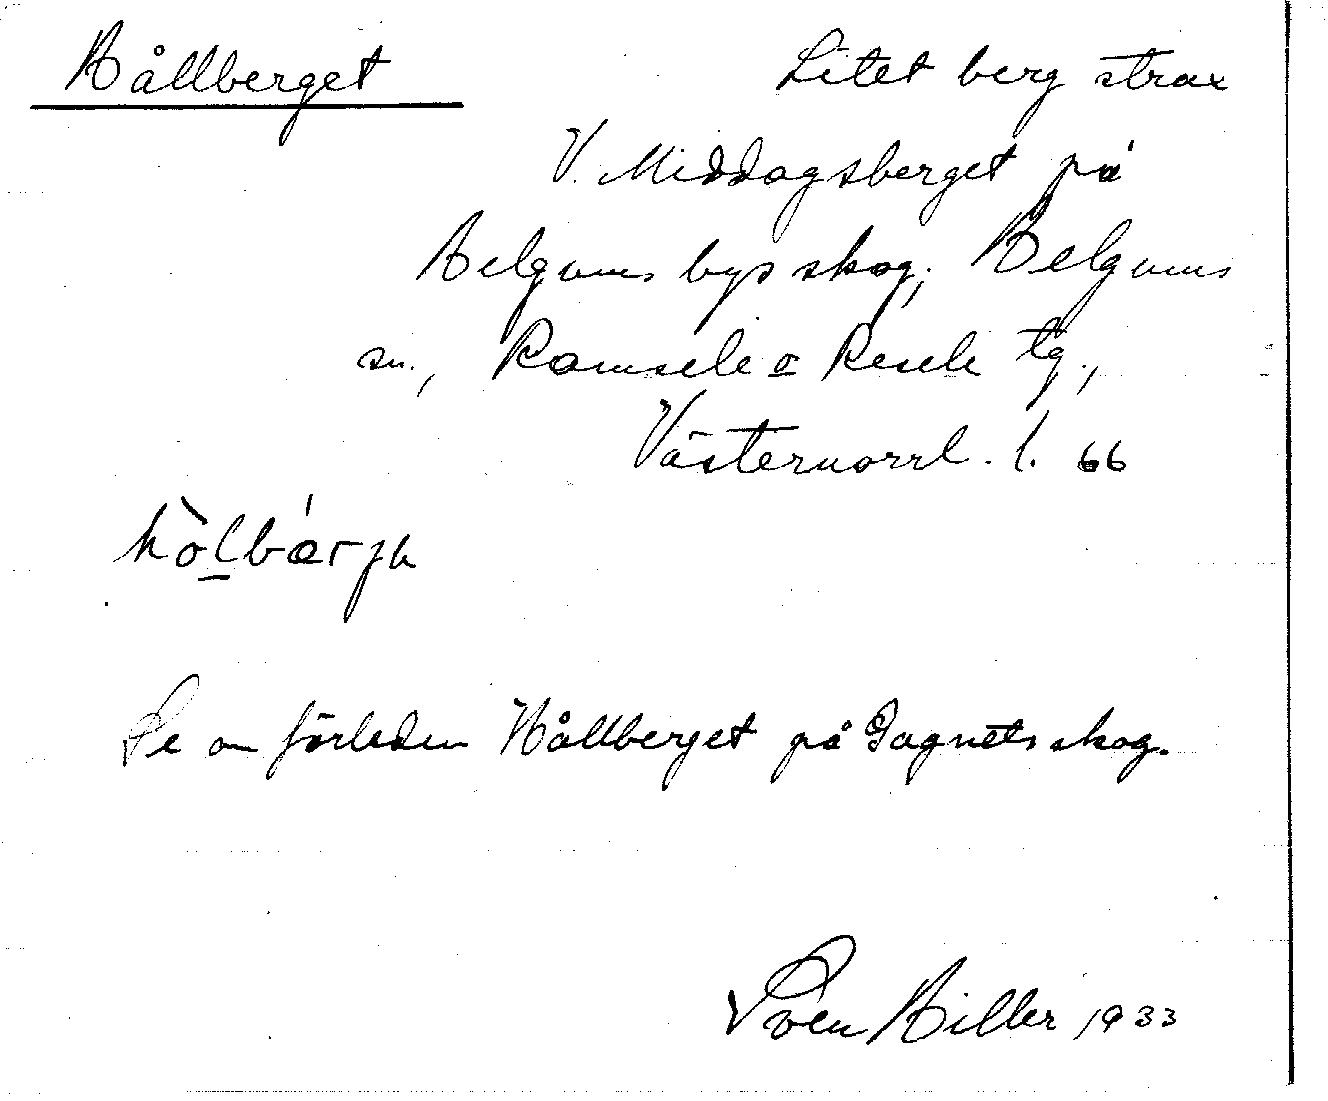 Hållberget
Litet berg strax
V. Middagsberget på
Helgums bys skog, Helgums
sn., Ramsele o Resele tg.,
Västernorrl. l. 66
hò̱lbárjə
Se om förleden Hållberget på Gagnets skog.
Sven Hiller 1933